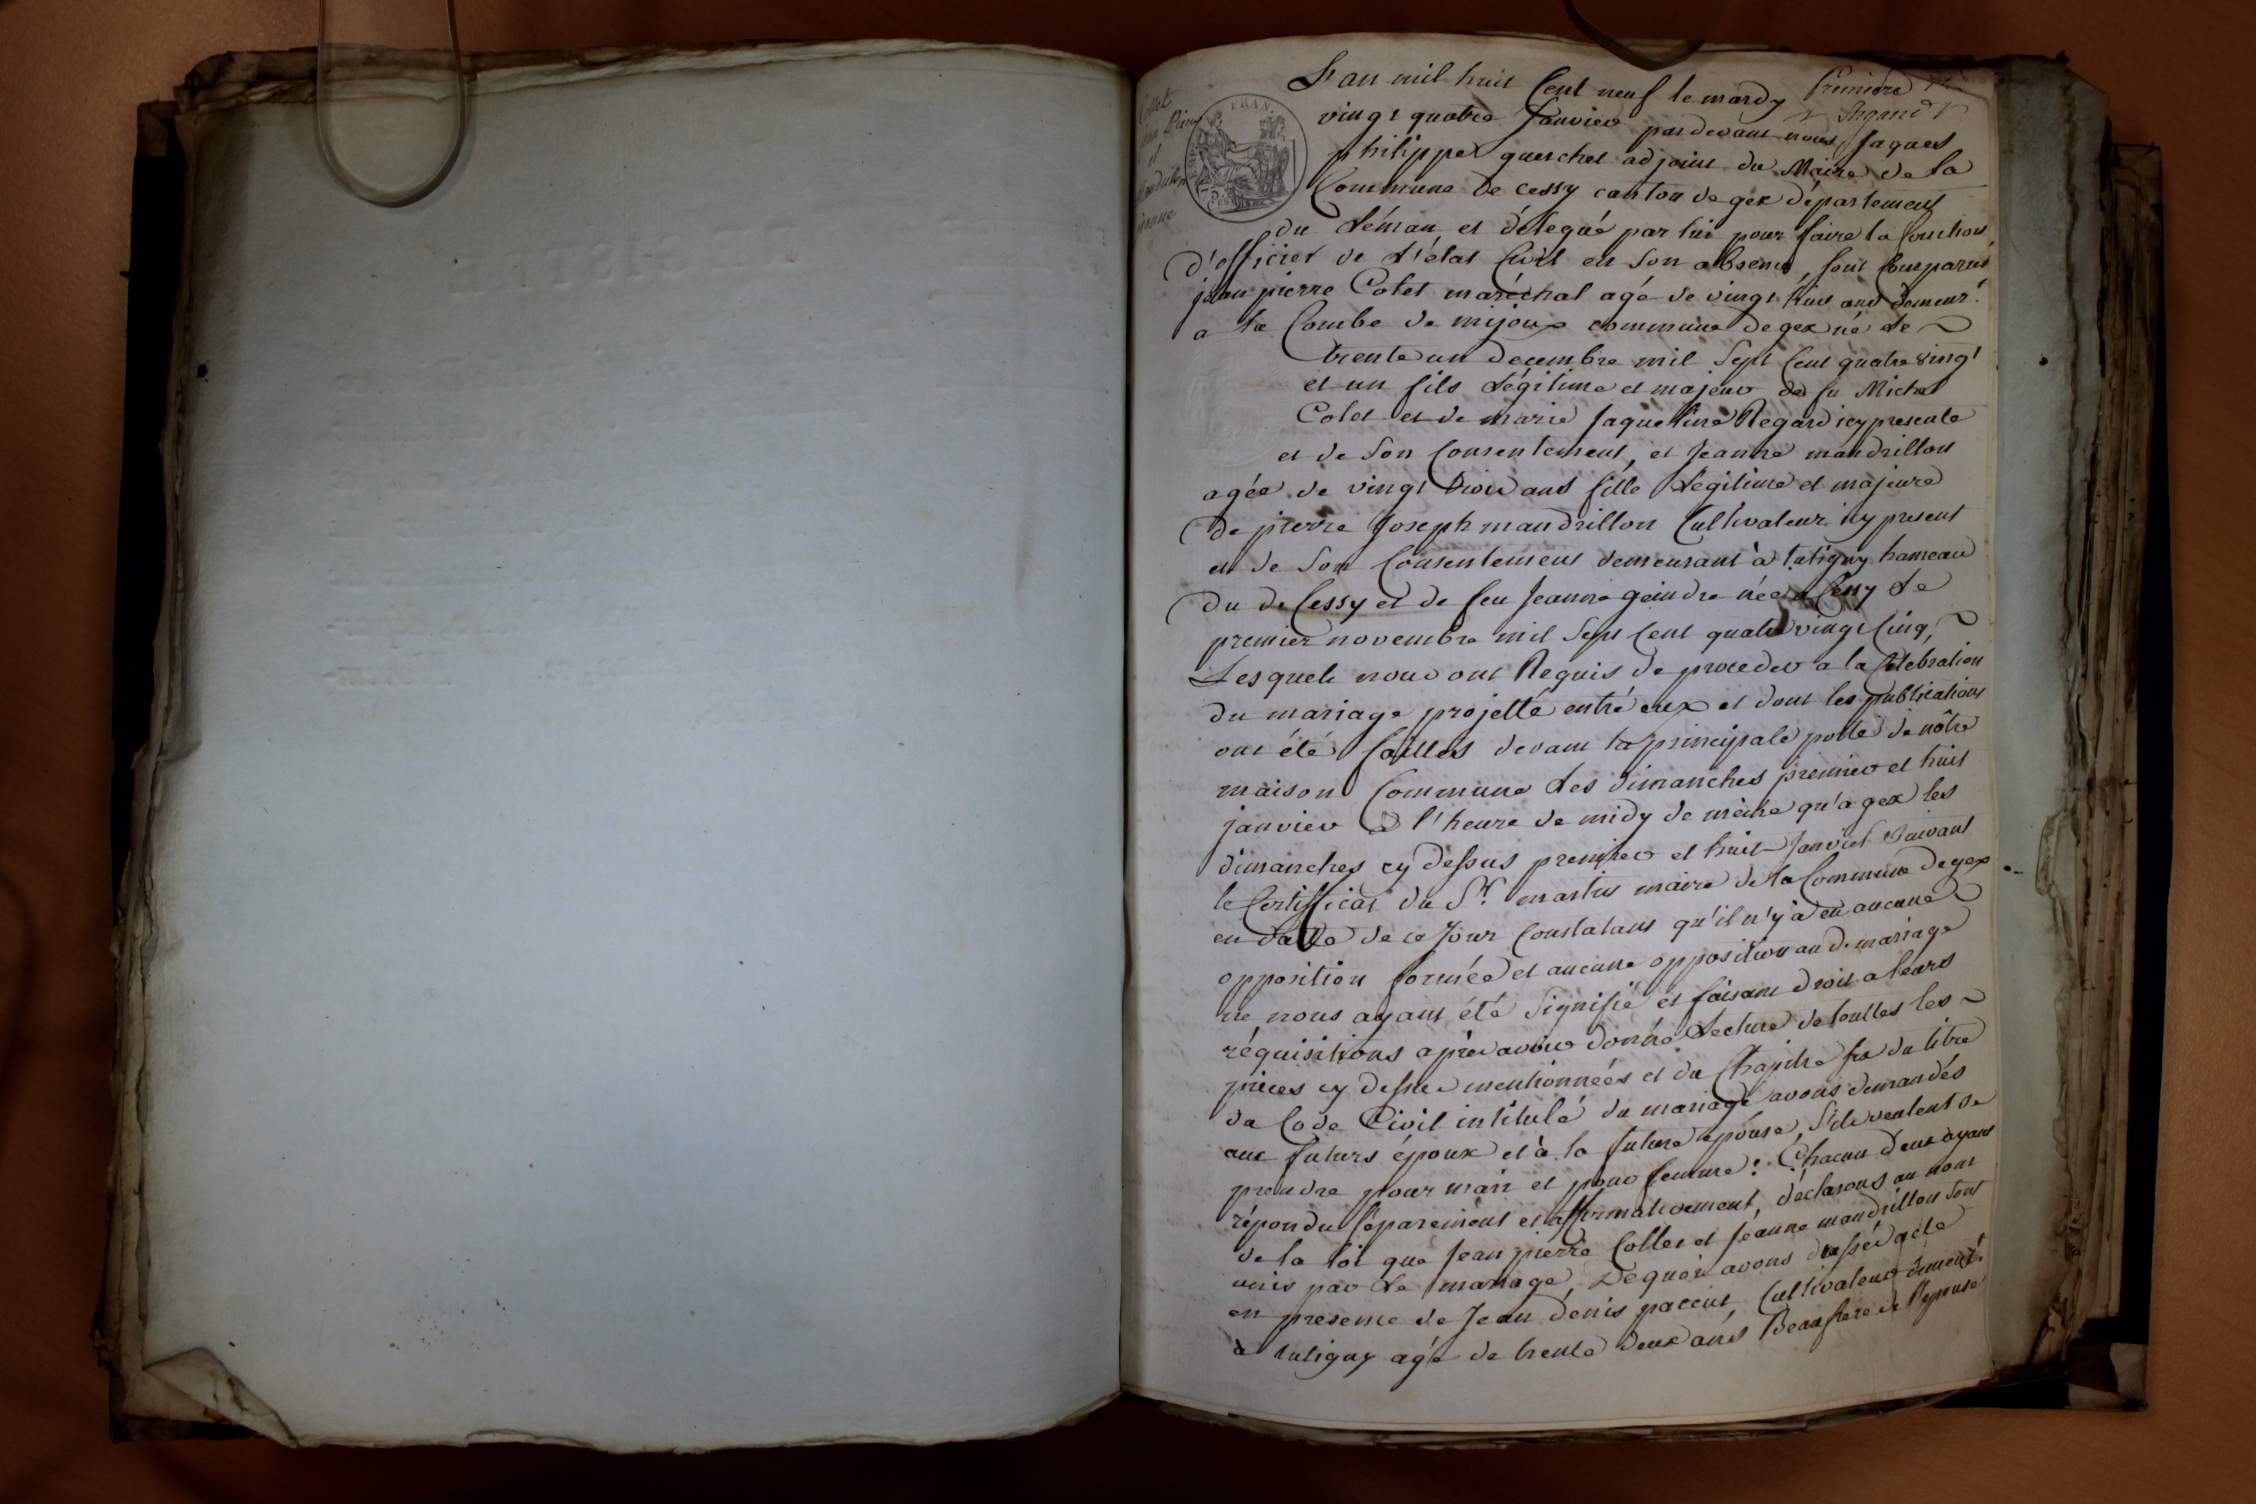 Collet
jean Pierre
et
Mandrillon
jeanne
Premiere
L'an mil huit Cent neuf le mardy
vingt quatre Janvier pardevant nous Jaques
philippe querchet adjoint du Maire de la
Commune de Cessy canton de gex département
du Léman et délegué par lui pour faire la fonction
d'officier de l'état Civil en son absence, sont Comparus
jean pierre Colet maréchal agé de vingt huit ans demeurt
a la Combe de mijoux commune de gex né le
trente un decembre mil Sept Cent quatre vingt
et un fils Légitime et majeur de fu Michel
Colet et de marie Jaqueline Regard icy presente
et de Son Consentement, et Jeanne mandrillon
agée de vingt trois ans fille Légitime et majeure
de pierre Joseph mandrillon Cultivateur icy present
et de Son Consentement demeurant à tutigny hameau
du de Cessy et de feu Jeanne geindre née a Cessy le
premier novembre mil Sept Cent quatre vingt Cinq,
Lesquels nous ont Requis de proceder a la Célebration
du mariage projetté entré eux et dont les publications
ont été faittes devant la principale porte de nôtre
maison Commune les dimanches premier et huit
janvier à l'heure de midy de même qu'à gex les
dimanches cy dessus premier et huit Janvier Suivant
le Certifficat du Sr. martin maire de la Commune de gex
en datte de ce Jour Constatans qu'il n'y a eu aucune
opposition formée et aucune opposition au d. mariage
ne nous ayant été Signifié et faisant droit a leurs
réquisitions après avoir donné Lecture de touttes les
pieces cy dessus mentionnées et du Chapitre six du titre
du Code Civil intitulé du mariage avons demandés
aux futurs époux et à la future épouse, S'ils veulent se
prendre pour mari et pour femme: Chacun d'eux ayant
répondu Séparement et affirmativement, déclarons au nom
de la loi que Jean pierre Collet et Jeanne mandrillon sont
unis par Le mariage, Dequoi avons dressé acte
en presence de Jean denis paccut, Cultivateur demeurt
à tutigny agé de trente deux ans Beaufrere de l'épouse